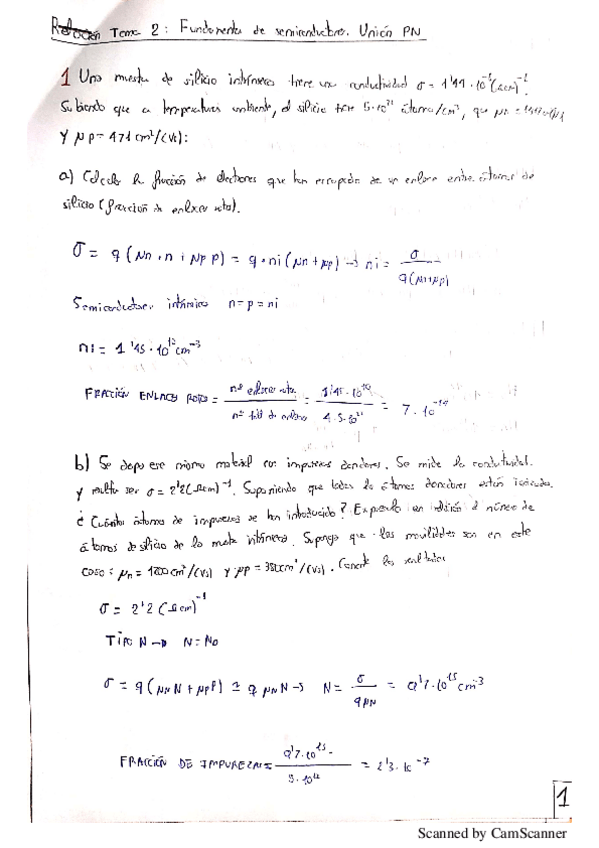 Relación Tema 2: Fundamentos de semiconductores. Unión PN
1 Una muestra de silicio intrínseco tiene una conductividad σ =
Sabiendo que a temperatura ambiente, el silicio tiene 5·10²² átomos/cm³, que μn =
y μp = 471 cm²/(Vs):
a) Calcule la fracción de electrones que han escapado de un enlace entre átomos de
silicio (fracción de enlaces rotos).
σ = q (μn · n + μp p) = q · ni (μn + μp) → ni = σ / q(μn+μp)
Semiconductor intrínseco n = p = ni
ni = 1'45 · 10¹⁰ cm⁻³
FRACCIÓN ENLACES ROTOS = nº enlaces rotos / nº total de enlaces = 1'45 · 10¹⁰ / 4 · 5 · 10²² = 7 · 10⁻¹⁴
b) Se dopa ese mismo material con impurezas donadoras. Se mide la conductividad
y resulta ser σ = 2'2 (Ωcm)⁻¹. Suponiendo que todos los átomos donadores están ionizados,
¿Cuántos átomos de impurezas se han introducido? Expréselo en relación al número de
átomos de silicio de la muestra intrínseca. Suponga que las movilidades son en este
caso: μn = cm²/(Vs) y μp = cm²/(Vs). Comente los resultados
σ = 2'2 (Ωcm)⁻¹
TIPO N → N = ND
σ = q (μN N + μP P) ≅ q μN N → N = σ / q μN = 9'7 · 10¹⁵ cm⁻³
FRACCIÓN DE IMPUREZAS = 9'7 · 10¹⁵ / 5 · 10²² = 2'3 · 10⁻⁷
1
Scanned by CamScanner